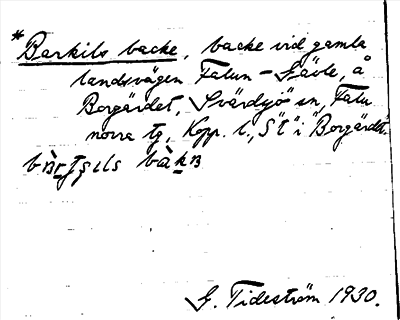 * Barkils backe, backe vid gamla
landsvägen Falun – Gävle, å
Borgärdet, Svärdsjö sn, Falu
norra tg, Kopp. l., i Borgärdet.
G. Tideström 1930.